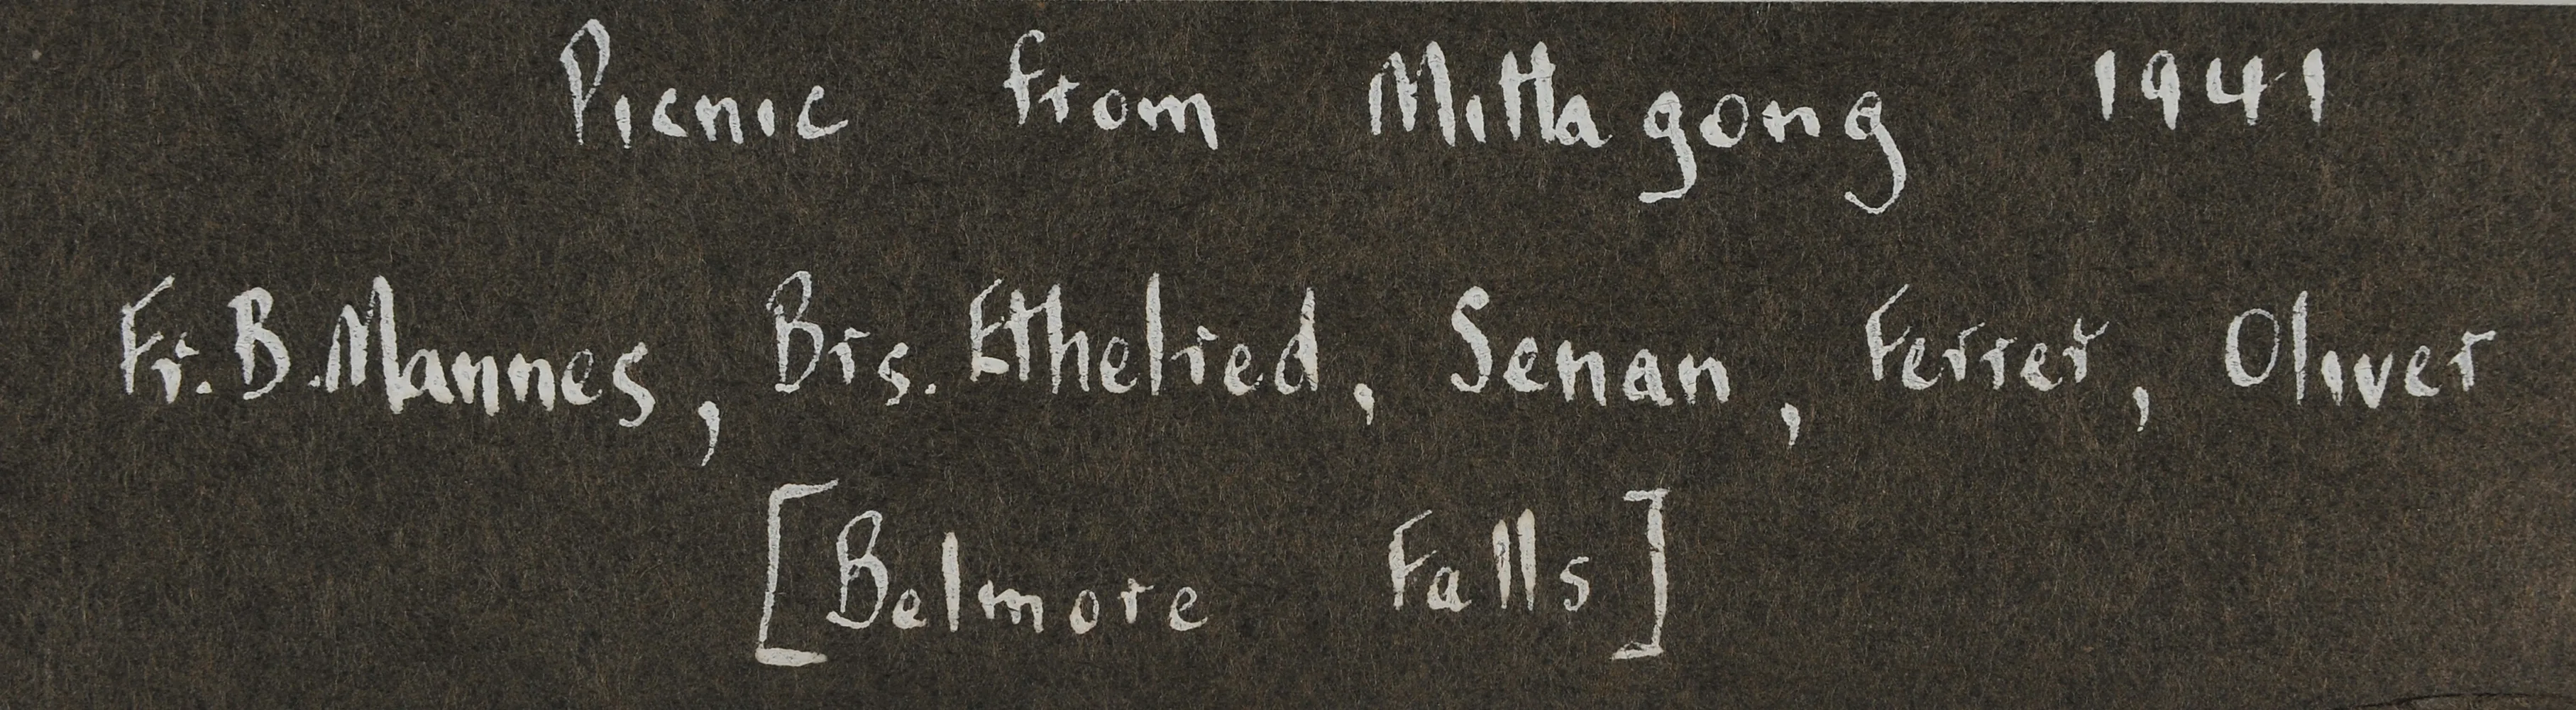 Picnic from Mittagong 1941
Fr. B. Mannes, Brs. Ethelred, Senan, Ferrer, Oliver
[Belmore Falls]